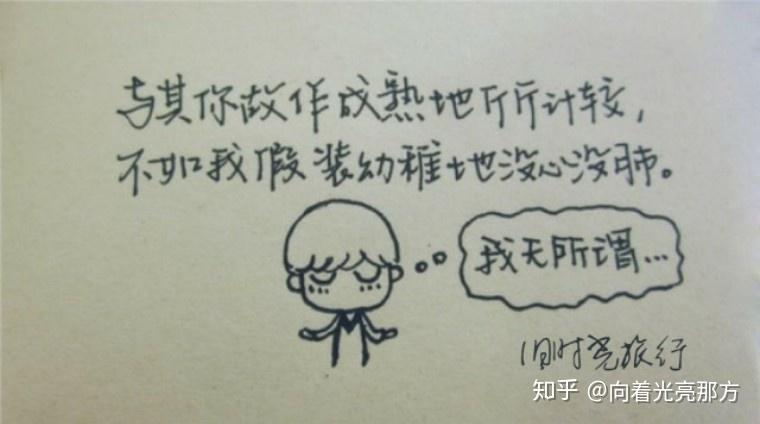 与其你故作成熟地斤斤计较，
不如我假装幼稚地没心没肺。
我无所谓...
旧时尧旅行
知乎 @向着光亮那方